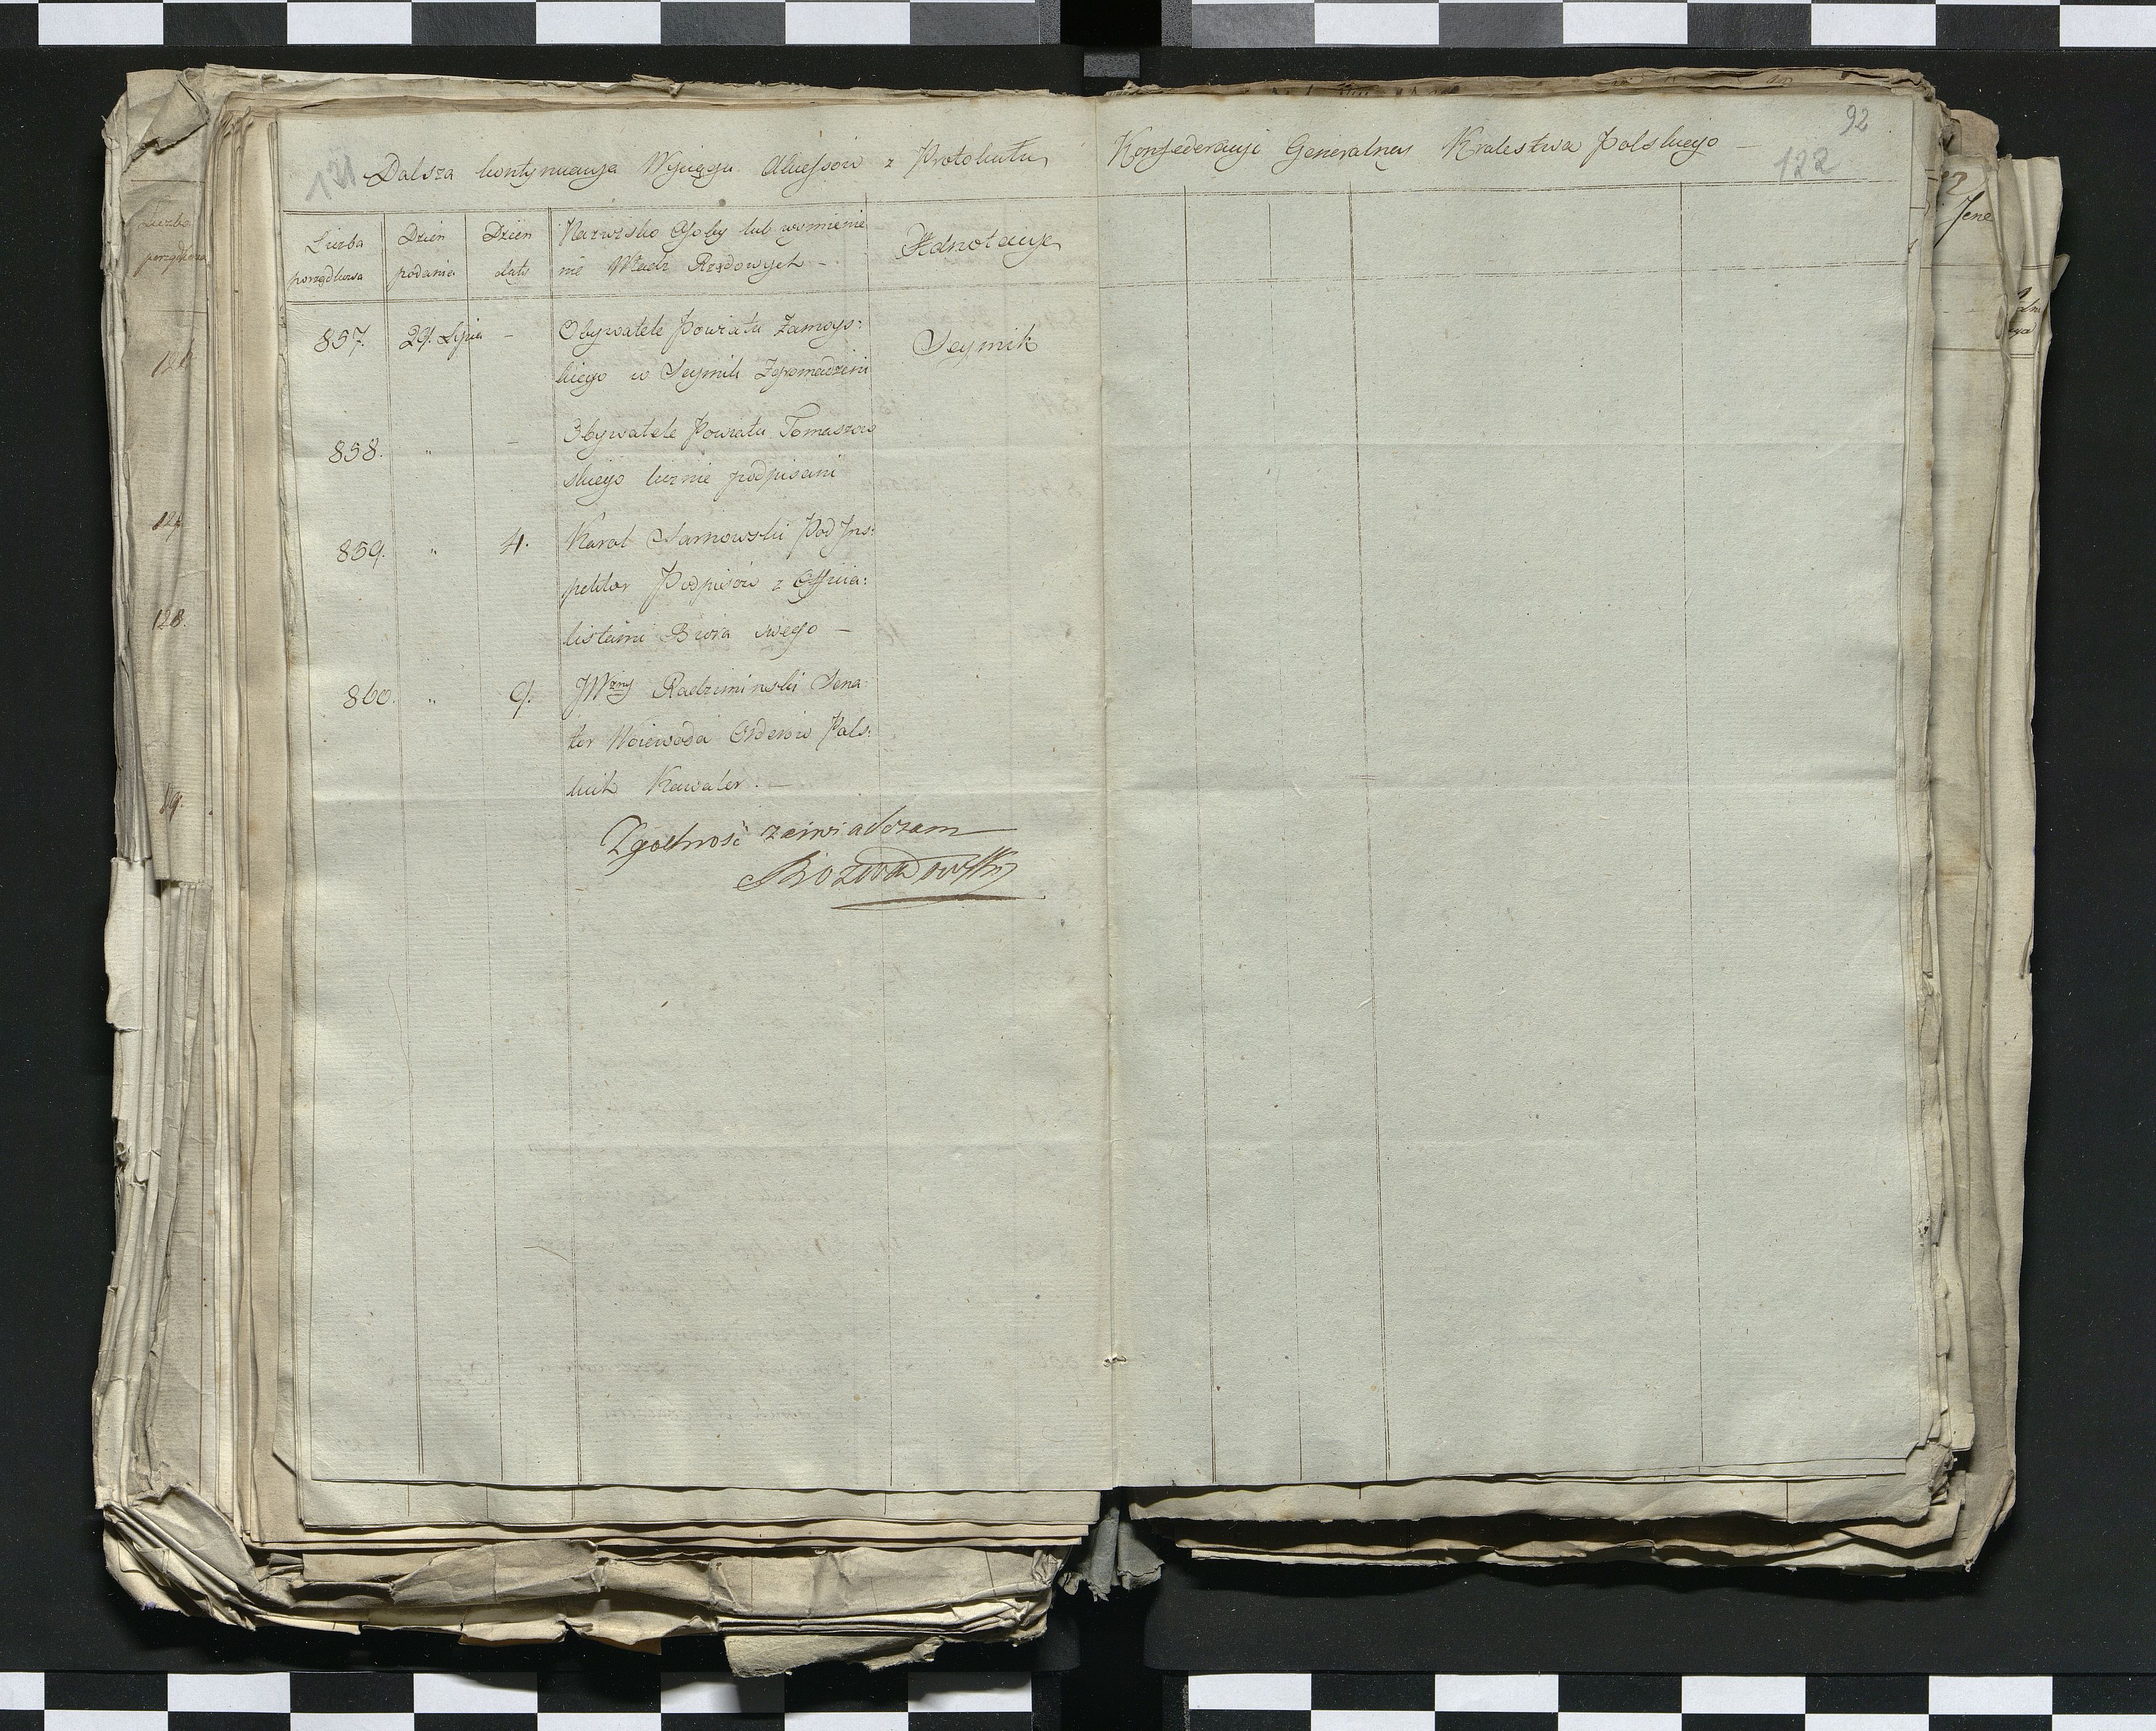 92
121 Dalsza kontynuacya Wyciągu Akcessow z Protokułu Konfederacyi Generalney Krolestwa Polskiego —
122
Liczba
porządkowa
Dzień
podania
Dzień
daty
Nazwisko Osoby lub wymienie
nie Władz Rządowych —
Adnotacye
857. 29. Lipca — Obywatele Powiatu Zamoys:
kiego w Seymik Zgromadzeni
Seymik
858. " — Obywatele Powiatu Tomaszow
skiego licznie podpisani
859. " 4. Karol Sarnowski Pod Jns:
pektor Podpisow z Officia:
listami Biora swego —
860. " 9. JWzny Radziminski Sena:
tor Woiewoda Orderow Pols:
kich Kawaler. —
Zgodność zaświadczam
Rozwadowski
Liczba
porządkowa
126
127.
128.
Jene